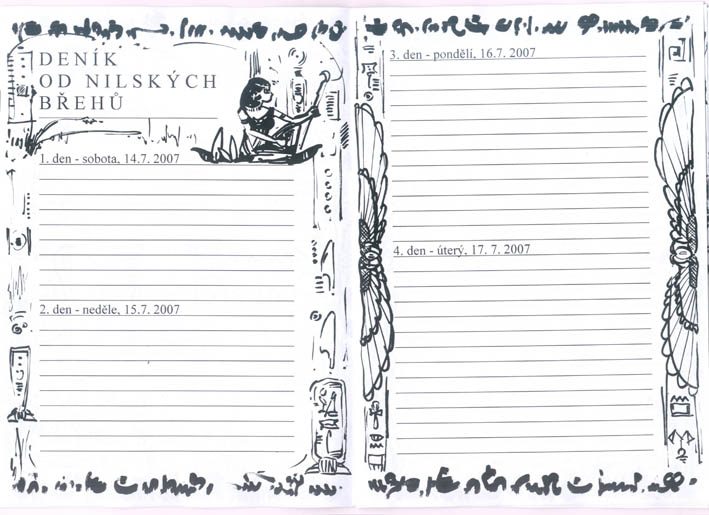 DENÍK
OD NILSKÝCH
BŘEHŮ
1. den - sobota, 14.7. 2007
2. den - neděle, 15.7. 2007
3. den - pondělí, 16.7. 2007
4. den - úterý, 17. 7. 2007